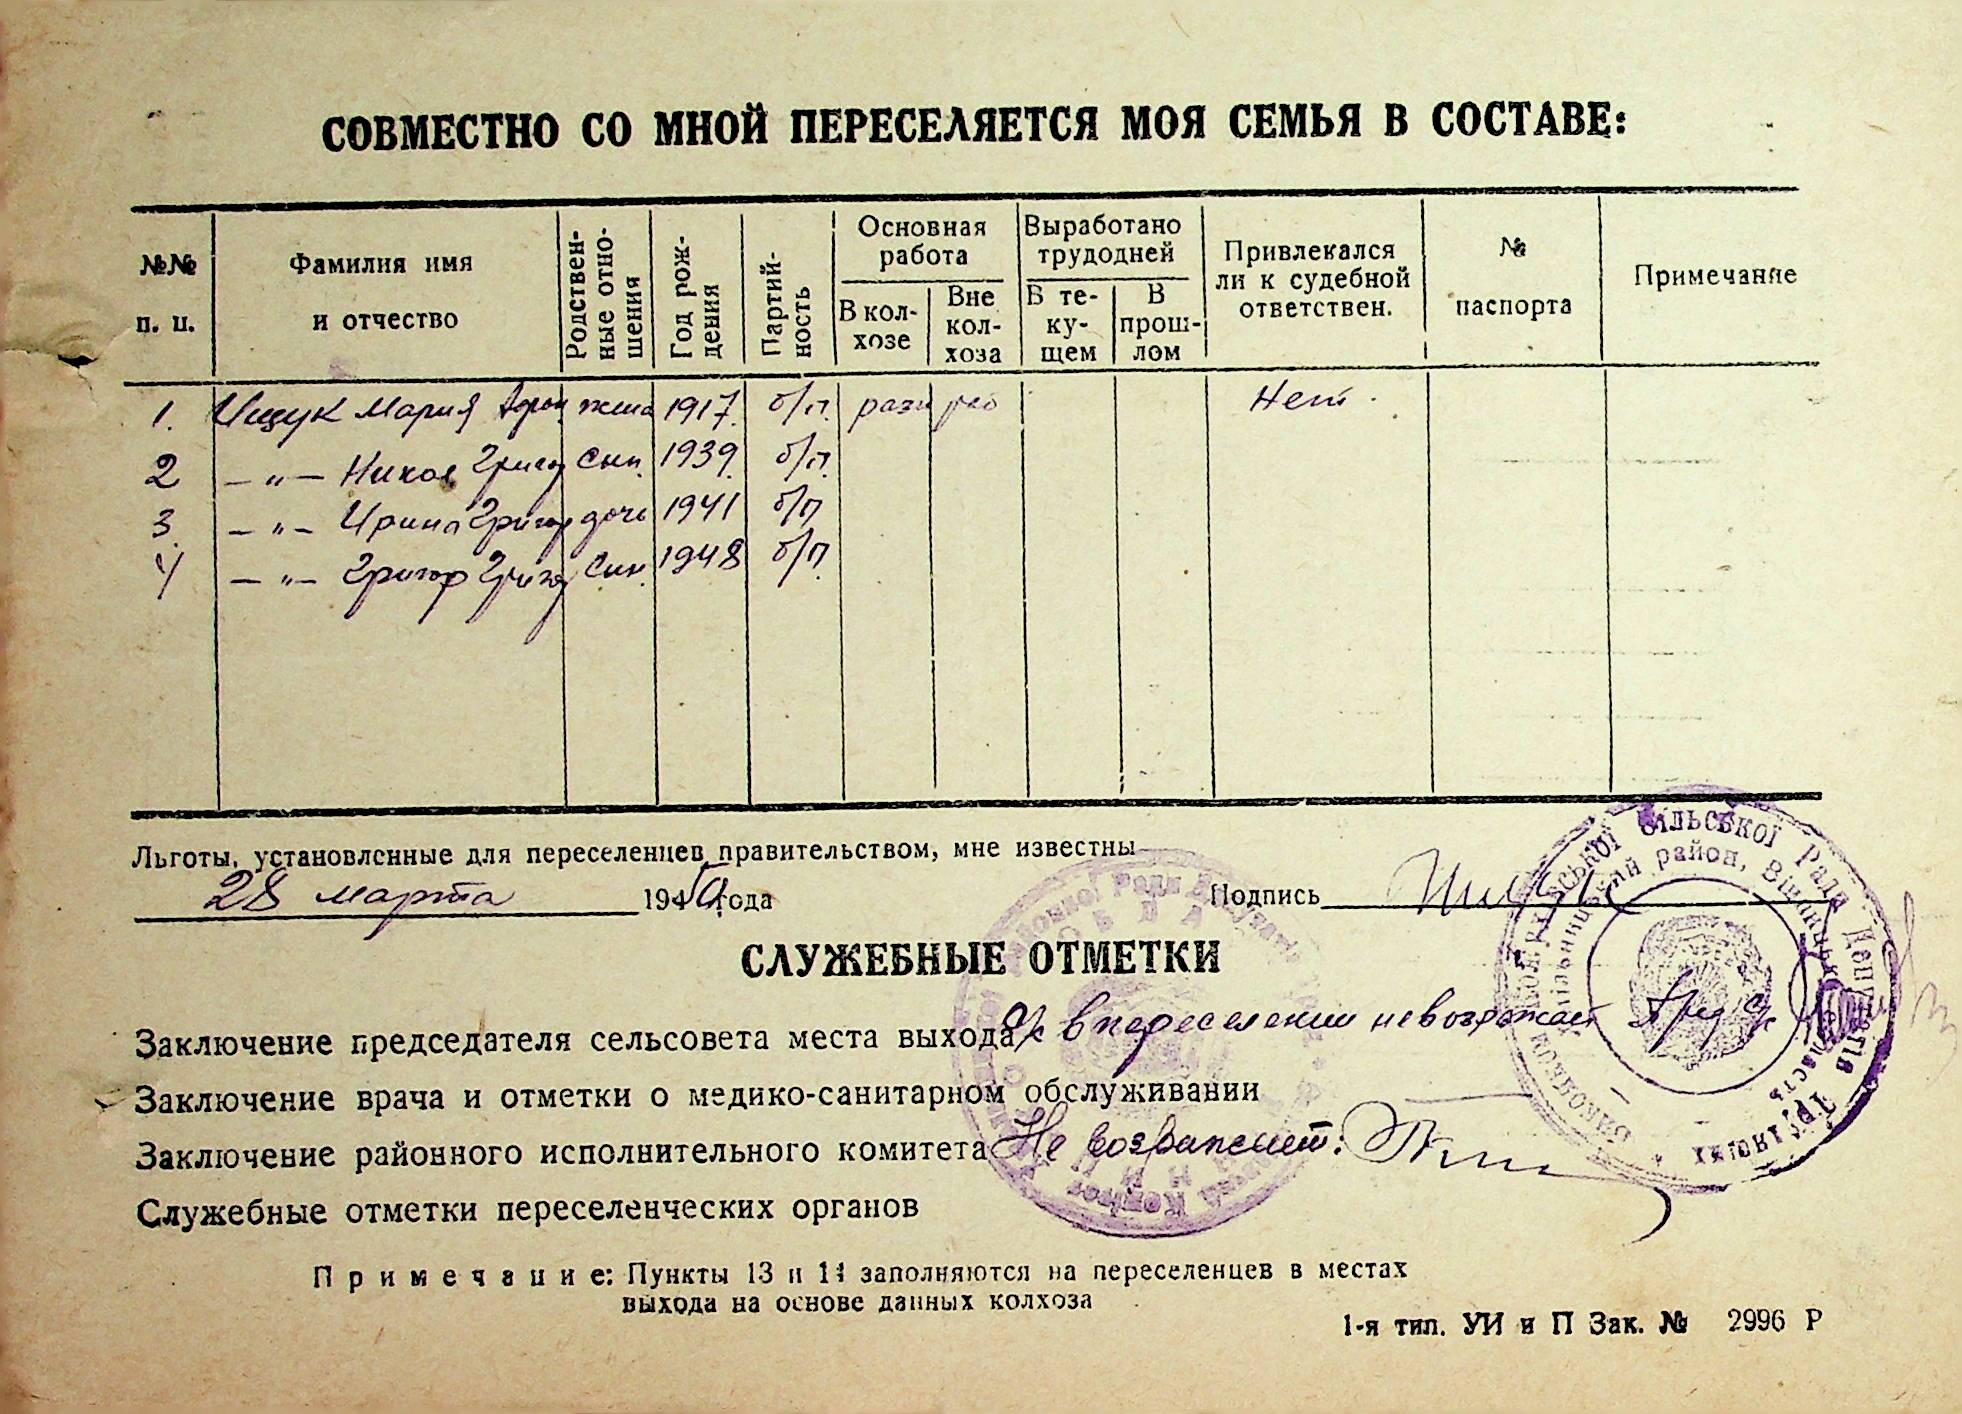 СОВМЕСТНО СО МНОЙ ПЕРЕСЕЛЯЕТСЯ МОЯ СЕМЬЯ В СОСТАВЕ:
№№ п. п.
Фамилия имя и отчество
Родствен-
ные отно-
шения
Год рож-
дения
Партий-
ность
Основная
работа
В кол-
хозе
Вне
кол-
хоза
Выработано
трудодней
В те-
ку-
щем
В
прош-
лом
Привлекался
ли к судебной
ответствен.
№
паспорта
Примечание
1. Ищук Мария жена 1917. б/п. Нет.
2 — „ — Никол Григор сын. 1939. б/п.
3. — „ — Ирина Григор дочь 1941 б/п
4 — „ — Григор Григор сын. 1948 б/п
Льготы, установленные для переселенцев правительством, мне известны
28 марта 1950 года Подпись
СЛУЖЕБНЫЕ ОТМЕТКИ
Заключение председателя сельсовета места выхода с/с в переселении не возражает
Заключение врача и отметки о медико-санитарном обслуживании
Заключение районного исполнительного комитета Не возражает:
Служебные отметки переселенческих органов
Примечание: Пункты 13 и 14 заполняются на переселенцев в местах
выхода на основе данных колхоза
1-я тип. УИ и П Зак. № 2996 Р
сільської Ради Депутатів Трудящих
район, Вінницька область